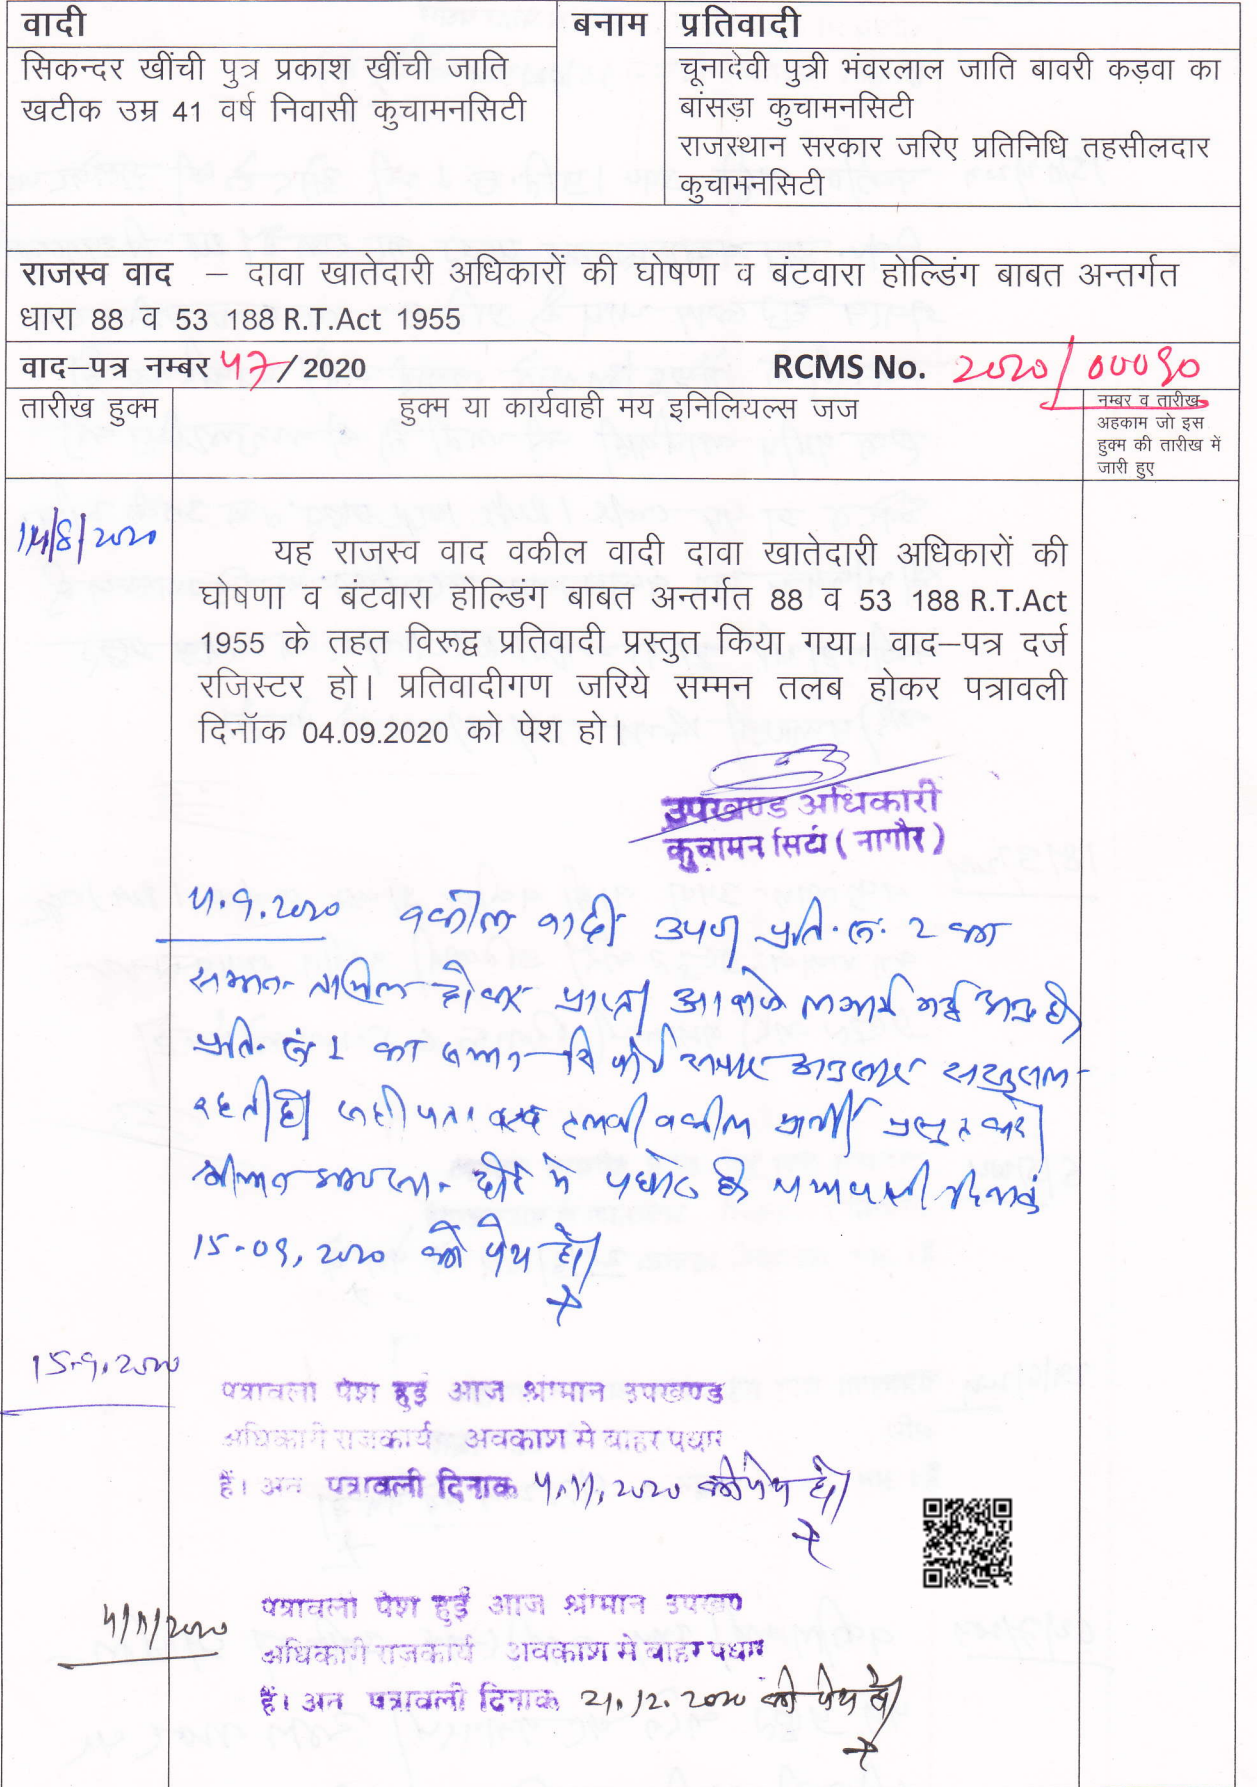 वादी
बनाम
प्रतिवादी
सिकन्दर खींची पुत्र प्रकाश खींची जाति
खटीक उम्र 41 वर्ष निवासी कुचामनसिटी
चूनादेवी पुत्री भंवरलाल जाति बावरी कड़वा का
बांसड़ा कुचामनसिटी
राजस्थान सरकार जरिए प्रतिनिधि तहसीलदार
कुचामनसिटी
राजस्व वाद – दावा खातेदारी अधिकारों की घोषणा व बंटवारा होल्डिंग बाबत अन्तर्गत
धारा 88 व 53 188 R.T.Act 1955
वाद–पत्र नम्बर 47/2020 RCMS No. 2020/00090
तारीख हुक्म
हुक्म या कार्यवाही मय इनिलियल्स जज
नम्बर व तारीख
अहकाम जो इस
हुक्म की तारीख में
जारी हुए
14/8/2020
यह राजस्व वाद वकील वादी दावा खातेदारी अधिकारों की
घोषणा व बंटवारा होल्डिंग बाबत अन्तर्गत 88 व 53 188 R.T.Act
1955 के तहत विरूद्व प्रतिवादी प्रस्तुत किया गया। वाद–पत्र दर्ज
रजिस्टर हो। प्रतिवादीगण जरिये सम्मन तलब होकर पत्रावली
दिनॉक 04.09.2020 को पेश हो।
उपखण्ड अधिकारी
कुचामन सिटी (नागौर)
4.9.2020 वकील वादी उपण प्रति. नं. 2 का
होकर
प्रति. नं 2 का
वकील
15-09.2020 को पेश हो।
15.9.2020
पत्रावली पेश हुई आज श्रीमान उपखण्ड
अधिकारी राजकार्य अवकाश मे बाहर पधार
हैं। अन पत्रावली दिनाक 4.11.2020 को पेश हो।
4/11/2020
पत्रावली पेश हुई आज श्रीमान उपखण
अधिकारी राजकार्य अवकाश मे बाहर पधार
हैं। अन पत्रावली दिनाक 21.12.2020 को पेश हो।